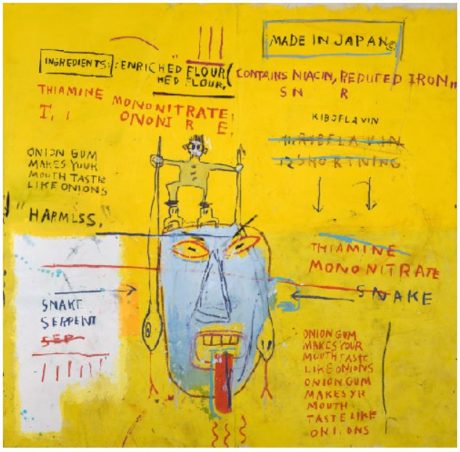 MADE IN JAPAN
INGREDIENTS: ENRICHED FLOUR (CONTAINS NIACIN, REDUCED IRON,
HED FLOUR,
SN R
THIAMINE MONONITRATE
T, I ONONI R E
KIBOFLAVIN
ONION GUM
MAKES YOUR
MOUTH TASTE
LIKE ONIONS
SHORTNING
"HARMLESS,
THIAMINE
MONONITRATE
SNAKE
SNAKE
SERPENT
SEP
ONION GUM
MAKES YOUR
MOUTH TASTE
LIKE ONIONS
ONION GUM
MAKES YR
MOUTH
TASTE LIKE
ONIONS